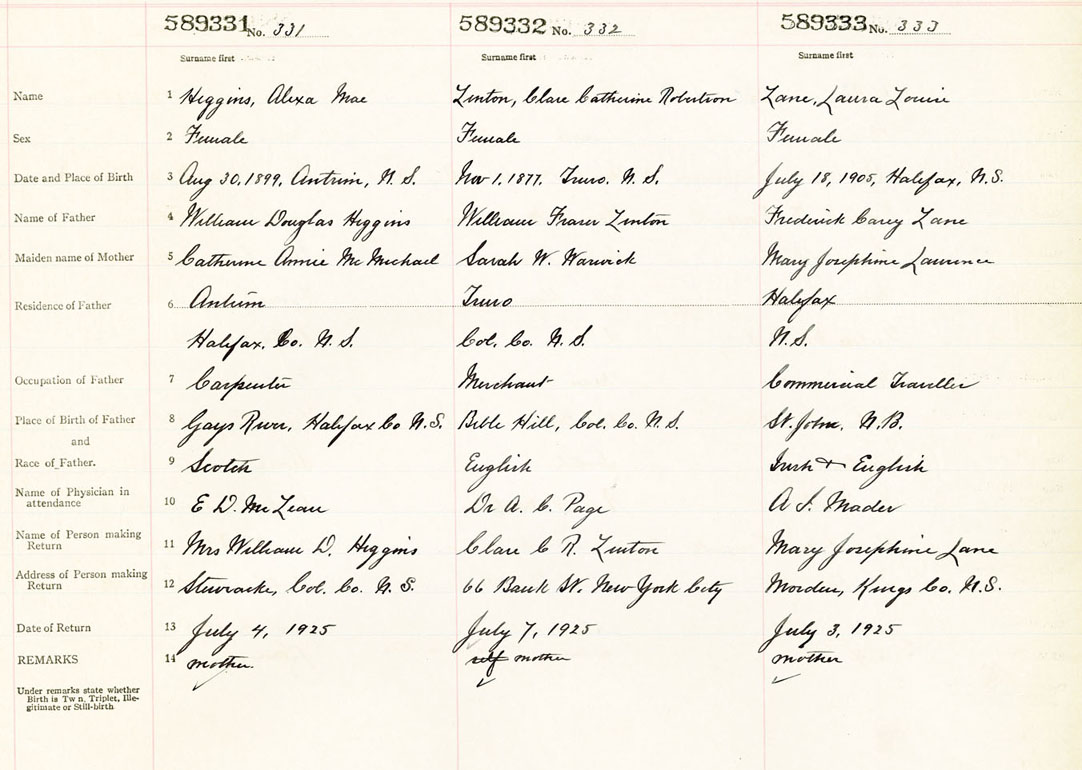 589331 No. 331 589332 No. 332 589333 No. 333
Surname first Surname first Surname first
Name 1 Higgins, Alexa Mae Linton, Clare Catherine Robertson Lane, Laura Louise
Sex 2 Female Female Female
Date and Place of Birth 3 Aug 30, 1899, Antrim, N. S. Nov 1, 1877. Truro. N. S. July 18, 1905, Halifax, N.S.
Name of Father 4 William Douglas Higgins William Fraser Linton Frederick Carey Lane
Maiden name of Mother 5 Catherine Annie McMichael Sarah W. Warwick Mary Josephine Laurence
Residence of Father 6 Antrim Truro Halifax
Halifax. Co. N. S. Col. Co. N. S. N. S.
Occupation of Father 7 Carpenter Merchant Commercial Traveller
Place of Birth of Father 8 Gays River, Halifax Co N.S. Bible Hill, Col. Co. N.S. St. John, N.B.
and
Race of Father. 9 Scotch English Irish & English
Name of Physician in
attendance 10 E D. McLean Dr A. C. Page A I. Mader
Name of Person making
Return 11 Mrs William D. Higgins Clare C R. Linton Mary Josephine Lane
Address of Person making
Return 12 Stewiacke, Col. Co. N. S. 66 Bank St. New York City Morden, Kings Co. N.S.
Date of Return 13 July 4, 1925 July 7, 1925 July 3, 1925
REMARKS 14 mother. self mother mother
Under remarks state whether
Birth is Tw n, Triplet, Ille-
gitimate or Still-birth